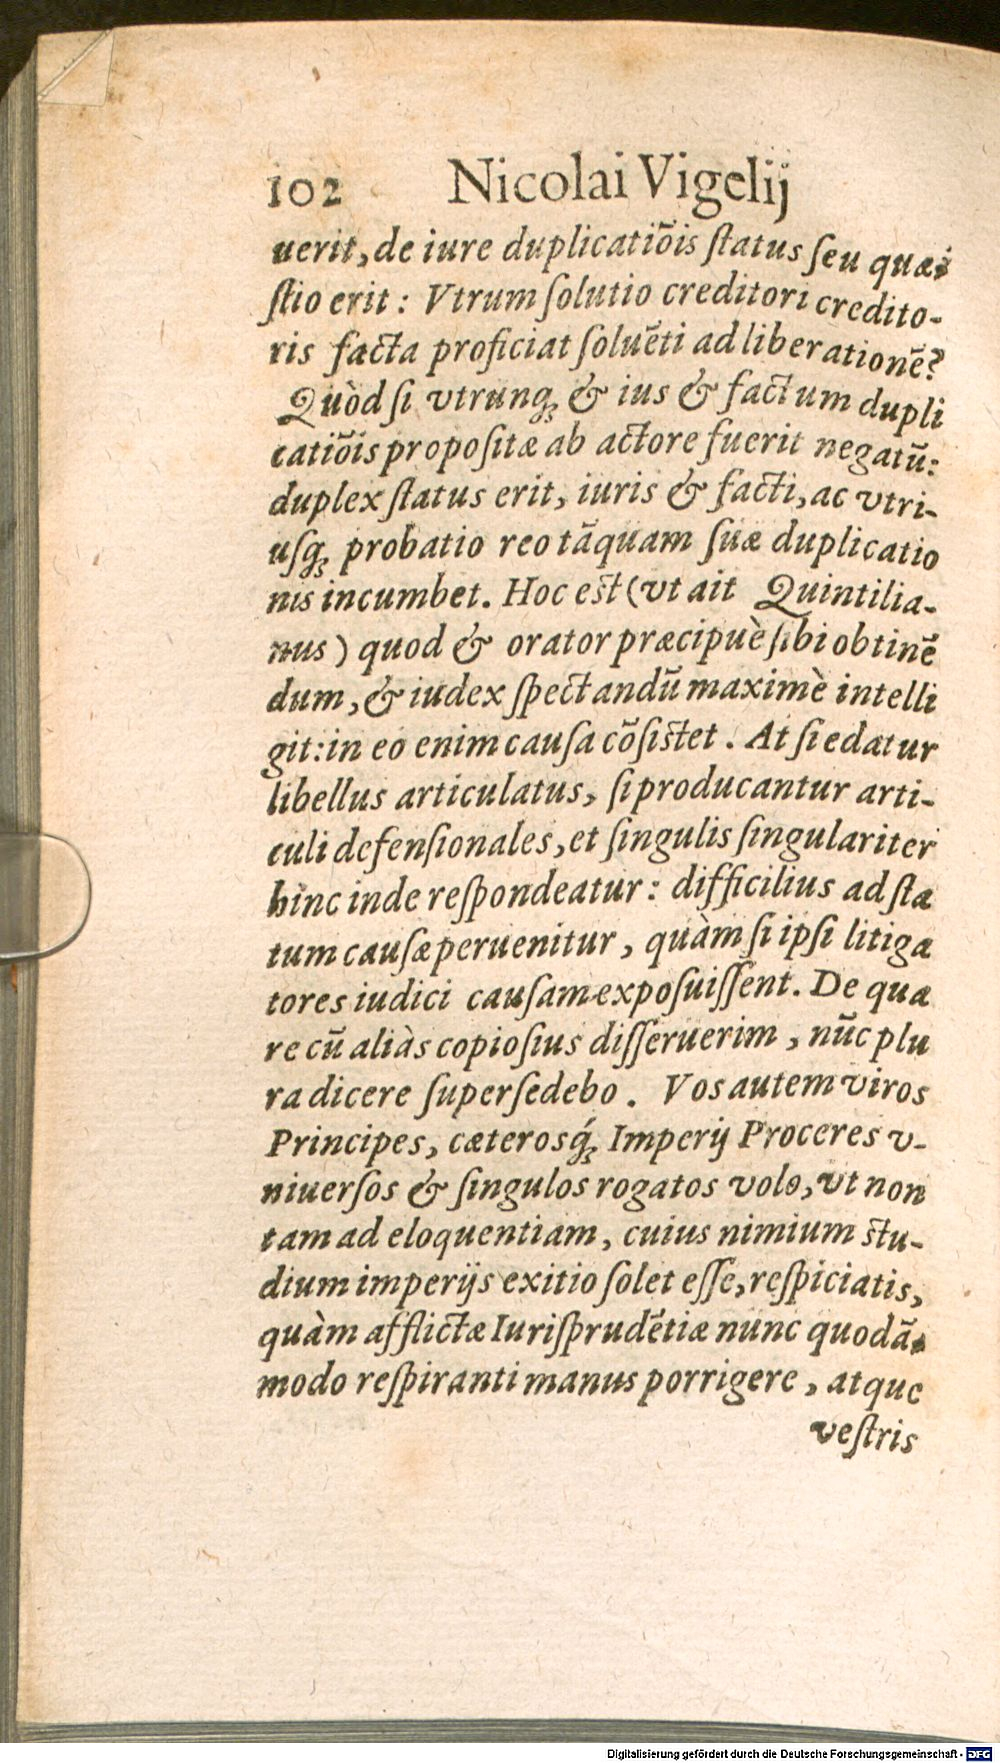 102 Nicolai Vigelij
uerit, de iure duplicatiõis ſtatus ſeu quæ-
ſtio erit: Vtrum ſolutio creditori credito-
ris facta proficiat ſoluẽti ad liberationẽ?
Quòd ſi vtrunq; & ius & factum dupli
catiõis propoſitæ ab actore fuerit negatũ:
duplex ſtatus erit, iuris & facti, ac vtri-
uſq; probatio reo tãquam ſuæ duplicatio
nis incumbet. Hoc est (vt ait Quintilia-
nus) quod & orator præcipuè ſibi obtinẽ
dum, & iudex ſpectandũ maximè intelli
git: in eo enim cauſa cõſistet. At ſi edatur
libellus articulatus, ſi producantur arti-
culi defenſionales, et ſingulis ſingulariter
hinc inde reſpondeatur: difficilius ad ſta
tum cauſæ peruenitur, quàm ſi ipſi litiga
tores iudici cauſam expoſuiſſent. De qua
re cũ aliàs copioſius diſſeruerim, nũc plu
ra dicere ſuperſedebo. Vos autem viros
Principes, cæterosq́; Imperij Proceres v-
niuerſos & ſingulos rogatos volo, vt non
tam ad eloquentiam, cuius nimium ſtu-
dium imperijs exitio ſolet eſſe, reſpiciatis,
quàm afflictæ Iuriſprudẽtiæ nunc quodã-
modo reſpiranti manus porrigere, atque
veſtris
Digitalisierung gefördert durch die Deutsche Forschungsgemeinschaft - DFG